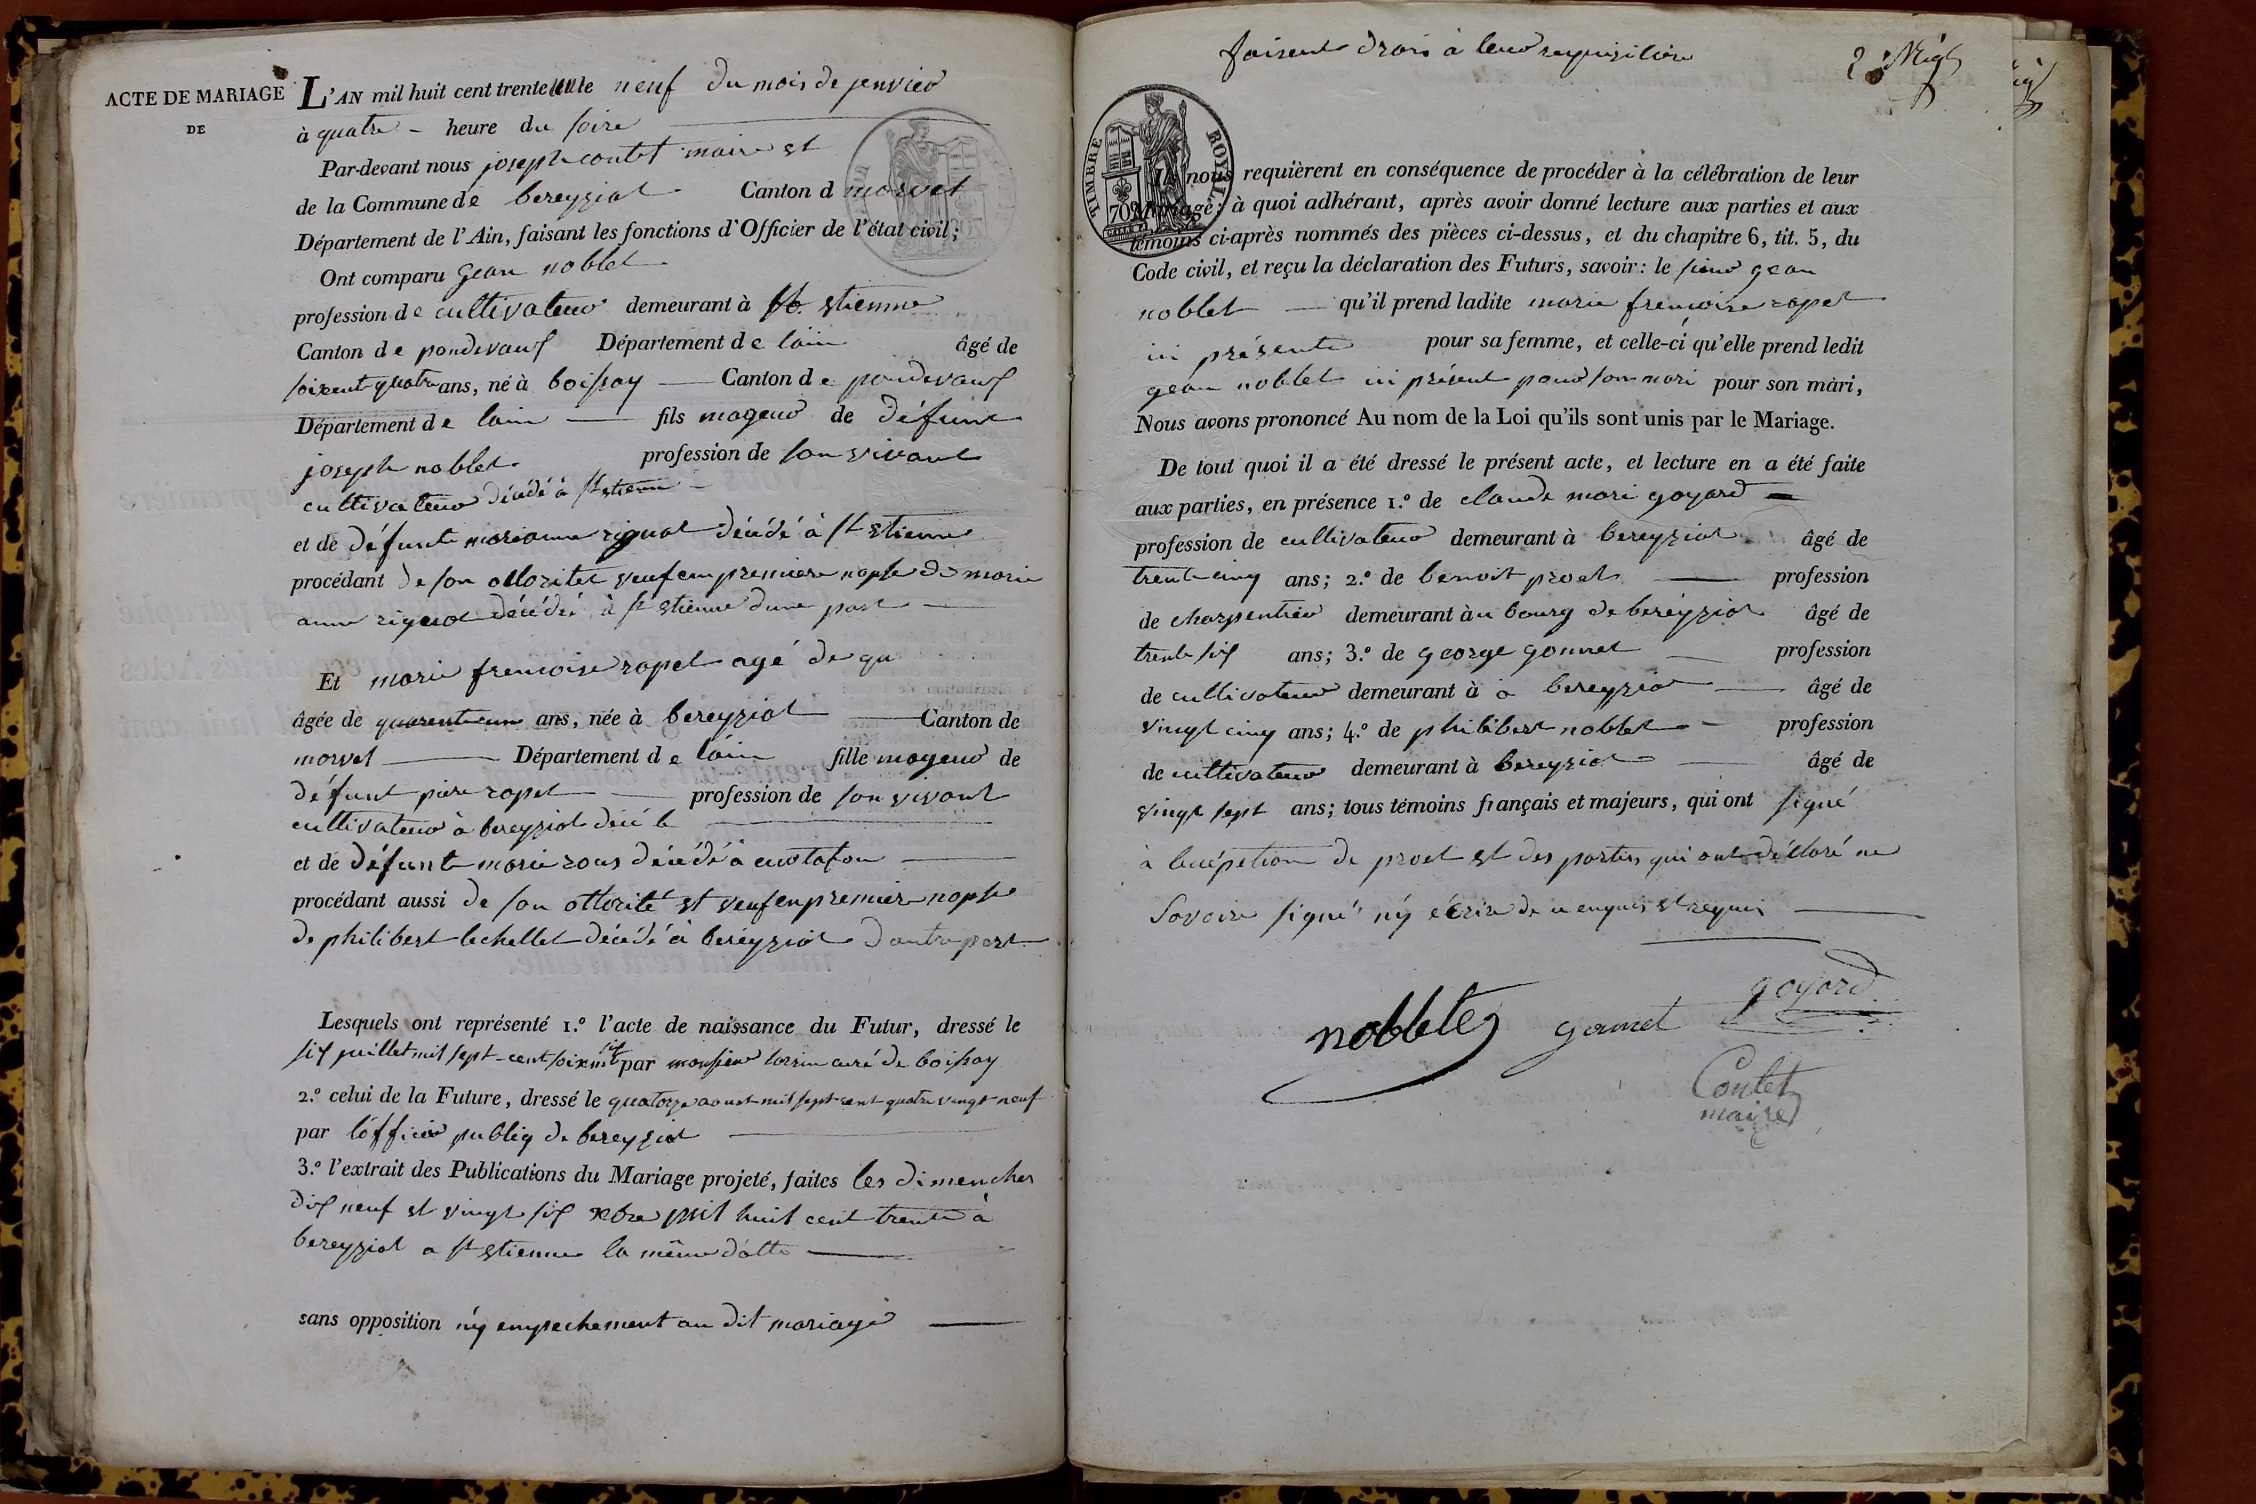 ACTE DE MARIAGE
DE
L'AN mil huit cent trente un le neuf du mois de jenvier
à quatre - heure du soire
Par-devant nous joseph contet maire et
de la Commune de bereyziat Canton d morvet
Département de l'Ain, faisant les fonctions d'Officier de l'état civil;
Ont comparu gean noblet
profession de cultivateur demeurant à St. etienne
Canton de pondevaux Département de lain âgé de
soixent quatre ans, né à boissay Canton de pondevaux
Département de lain fils mageur de défunt
joseph noblet profession de son vivant
cultivateur décédé à st etienne
et de défunte marianne rigurat décédé à st etienne
procédant de son ottoritet veuf en premiere nopse de marie
anne décédéé à st etienne dune part
Et marie frencoise ropet agé de qu
âgée de quarent un ans, née à bereyziat Canton de
morvet Département de lain fille mageur de
défunt piere ropet profession de son vivant
cultivateur à bereyziat décé le
et de défunte marie rous décédé à curtafon
procédant aussi de son ottorité et veuf en premier nopse
de philibert lechellet décédé à beréyziat dautre part
Lesquels ont représenté 1.° l'acte de naissance du Futur, dressé le
six juillet mil sept-cent soixent six par monsieur curé de boissay
2.° celui de la Future, dressé le quatorze aoust mil sept cent quatre vingt neuf
par lófficier publiq de bereyziat
3.° l'extrait des Publications du Mariage projeté, faites les dimenches
dix neuf et vingt six xbre mil huit cent trente à
bereyziat a st etienne la même datte
sans opposition ný empechement au dit mariage
faisent drois à leur requisition
TIMBRE ROYAL
70
Ils nous requièrent en conséquence de procéder à la célébration de leur
Mariage; à quoi adhérant, après avoir donné lecture aux parties et aux
témoins ci-après nommés des pièces ci-dessus, et du chapitre 6, tit. 5, du
Code civil, et reçu la déclaration des Futurs, savoir: le sieur gean
noblet qu'il prend ladite marie frencoise ropet
ici présente pour sa femme, et celle-ci qu'elle prend ledit
gean noblet ici présent pour son mari pour son mari,
Nous avons prononcé Au nom de la Loi qu'ils sont unis par le Mariage.
De tout quoi il a été dressé le présent acte, et lecture en a été faite
aux parties, en présence 1.° de claude mari goyard
profession de cultivateur demeurant à bereyziat âgé de
trente cinq ans; 2.° de benoit proet profession
de charpentier demeurant àu bourg de beréyziat âgé de
trente six ans; 3.° de george gonnet profession
de cultivateur demeurant à a bereyziat âgé de
vingt cinq ans; 4.° de philibert noblet profession
de cultivateur demeurant à bereyziat âgé de
vingt sept ans; tous témoins français et majeurs, qui ont signé
à lecépetion de proet et des parties qui ont déclaré ne
savoire signé ný écrire de ce enquis et requis
noblet gonnet goyard
Contet
maire